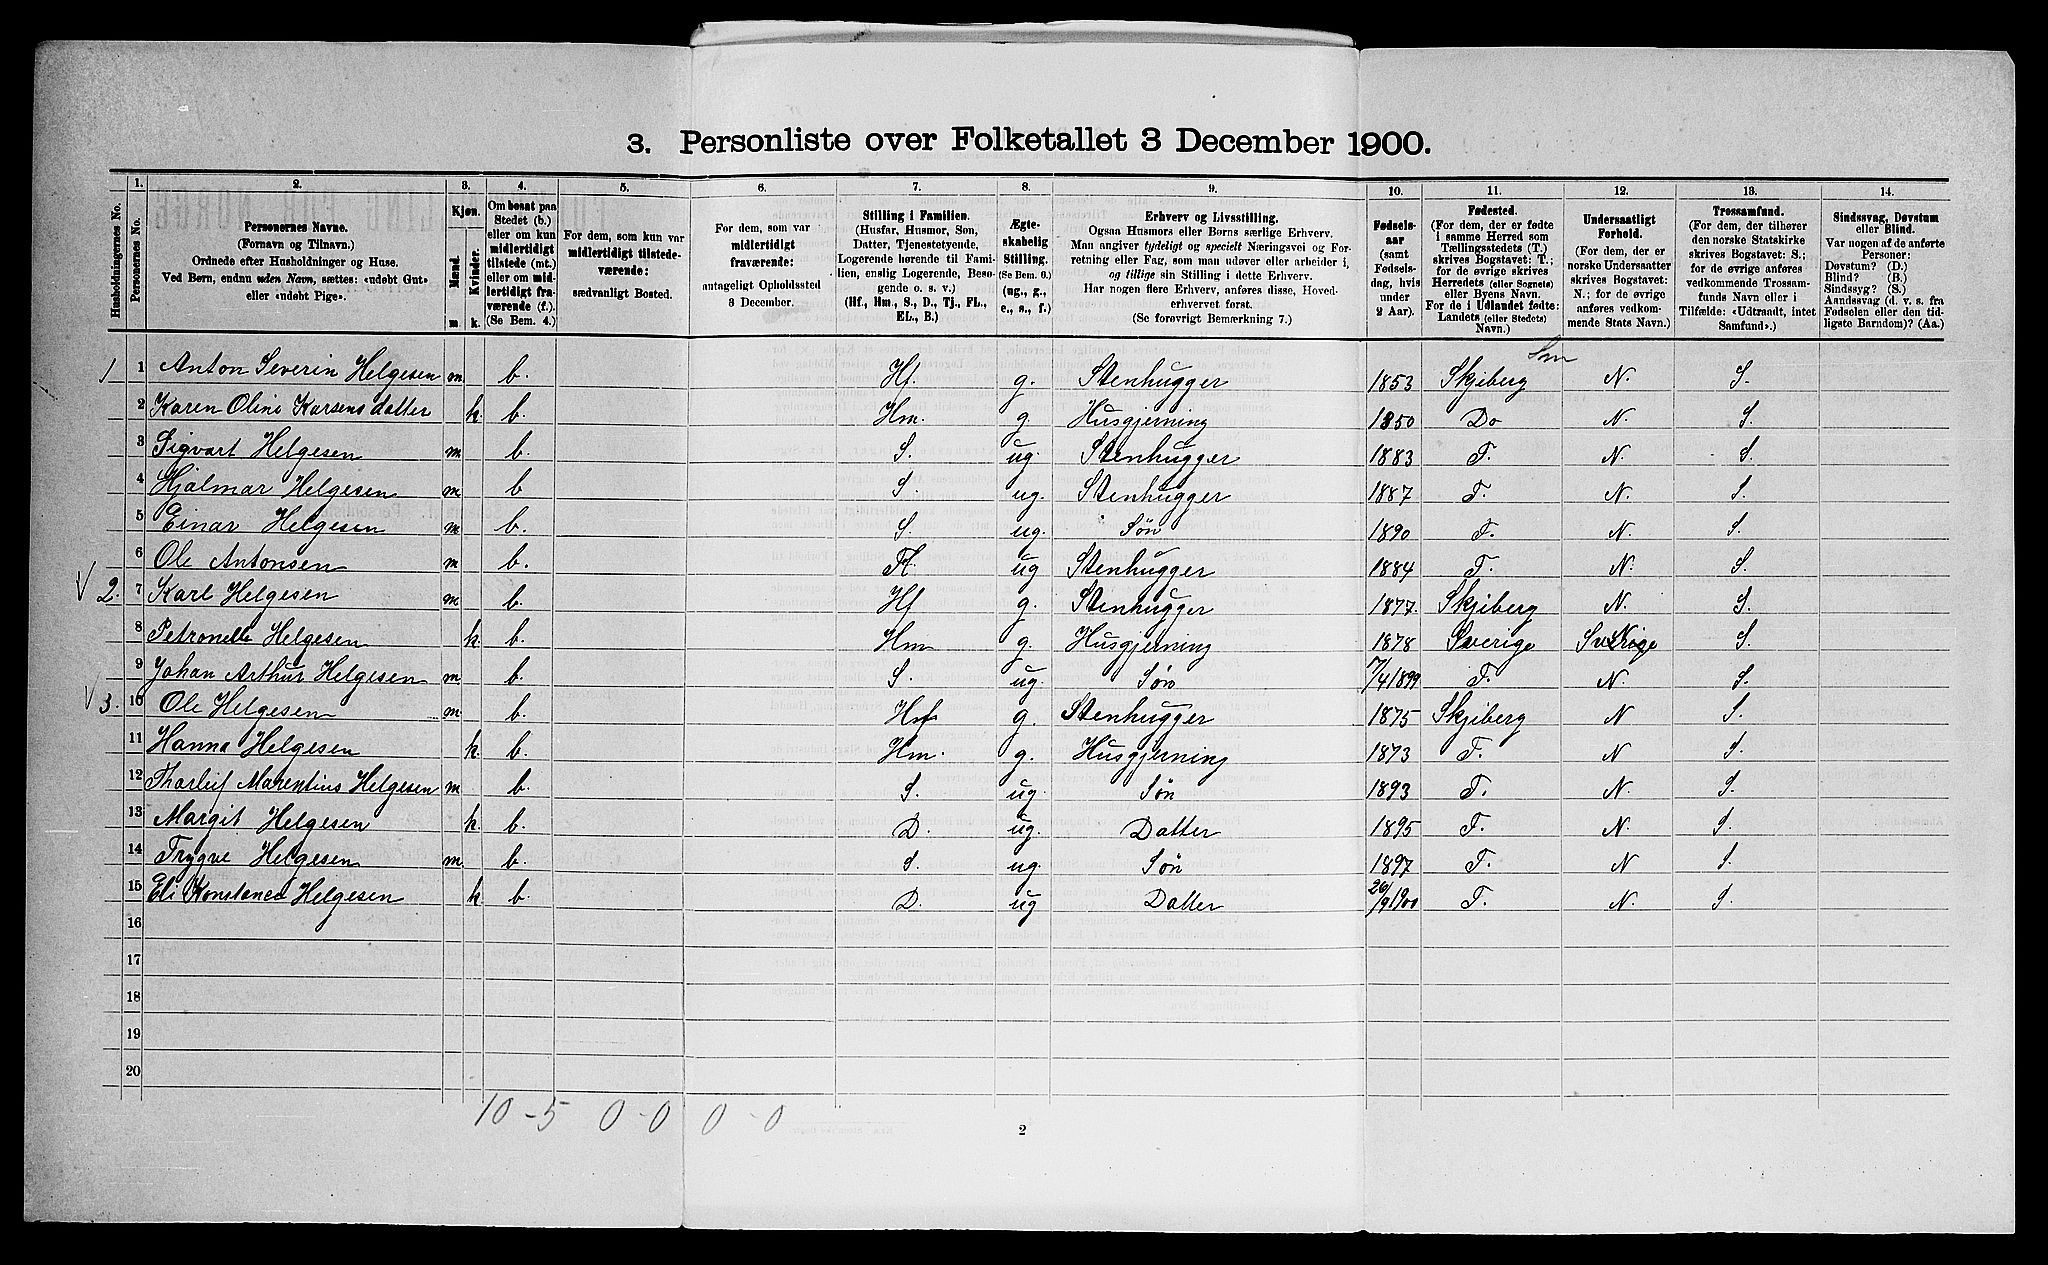 3. Personliste over Folketallet 3 December 1900.
Husholdningernes No.
1. Personernes No.
2. Personernes Navne. (Fornavn og Tilnavn.) Ordnede efter Husholdninger og Huse. Ved Børn, endnu uden Navn, sættes: «udøbt Gut» eller «udøbt Pige».
3. Kjøn. Mænd. m. Kvinder. k.
4. Om bosat paa Stedet (b.) eller om kun midlertidigt tilstede (mt.) eller om midlertidigt fraværende (f.). (Se Bem. 4.)
5. For dem, som kun var midlertidigt tilstedeværende: sædvanligt Bosted.
6. For dem, som var midlertidigt fraværende: antageligt Opholdssted 3 December.
7. Stilling i Familien. (Husfar, Husmor, Søn, Datter, Tjenestetyende, Logerende hørende til Familien, enslig Logerende, Besøgende o. s. v.) (Hf., Hm., S., D., Tj., FL., EL., B.)
8. Ægteskabelig Stilling. (Se Bem. 6.) (ug., g., e., s., f.)
9. Erhverv og Livsstilling. Ogsaa Husmors eller Børns særlige Erhverv. Man angiver tydeligt og specielt Næringsvei og Forretning eller Fag, som man udøver eller arbeider i, og tillige sin Stilling i dette Erhverv. Har nogen flere Erhverv, anføres disse, Hovederhvervet først. (Se forøvrigt Bemærkning 7.)
10. Fødselsaar (samt Fødselsdag, hvis under 2 Aar).
11. Fødested. (For dem, der er fødte i samme Herred som Tællingsstedets (T.) skrives Bogstavet: T.; for de øvrige skrives Herredets (eller Sognets) eller Byens Navn. For de i Udlandet fødte: Landets (eller Stedets) Navn.)
12. Undersaatligt Forhold. (For dem, der er norske Undersaatter skrives Bogstavet: N.; for de øvrige anføres vedkommende Stats Navn.)
13. Trossamfund. (For dem, der tilhører den norske Statskirke skrives Bogstavet: S.; for de øvrige anføres vedkommende Trossamfunds Navn eller i Tilfælde: «Udtraadt, intet Samfund».)
14. Sindssvag, Døvstum eller Blind. Var nogen af de anførte Personer: Døvstum? (D.) Blind? (B.) Sindssyg? (S.) Aandssvag (d. v. s. fra Fødselen eller den tidligste Barndom)? (Aa.)
Sm
1 1 Anton Severin Helgesen m. b. Hf. g. Stenhugger 1853 Skjeberg N. S.
2 Karen Oline Karsensdatter k. b. Hm. g. Husgjerning 1850 Do N. S.
3 Sigvart Helgesen m b. S. ug. Stenhugger 1883 T. N. S.
4 Hjalmar Helgesen m b S. ug. Stenhugger 1887 T. N. S.
5 Einar Helgesen m b. S. ug. Søn 1890 T. N. S.
6 Ole Antonsen m b. Fl. ug Stenhugger 1884 T. N. S.
√ 2. 7 Karl Helgesen m b. Hf g. Stenhugger 1877. Skjeberg N. S.
8 Petronelle Helgesen k. b. Hm g. Husgjerning 1878 Sverige Sverige N S.
9 Johan Arthur Helgesen m. b. S. ug. Søn 7/4 1899 T. N. S.
√ 3. 10 Ole Helgesen m. b. Hf g. Stenhugger 1875 Skjeberg N S.
11 Hanna Helgesen k. b. Hm. g. Husgjerning 1873 T. N S.
12 Tharleif Marentius Helgesen m b. S. ug. Søn 1893 T. N. S.
13 Margit Helgesen k. b. D. ug. Datter 1895 T. N. S.
14 Trygve Helgesen m. b. S. ug. Søn 1897 T. N S.
15 Eli Konstance Helgesen k. b. D. ug Datter 26/9 1900 T. N. S.
16
17
18
19
20
10 - 5 0 - 0 0 - 0
2